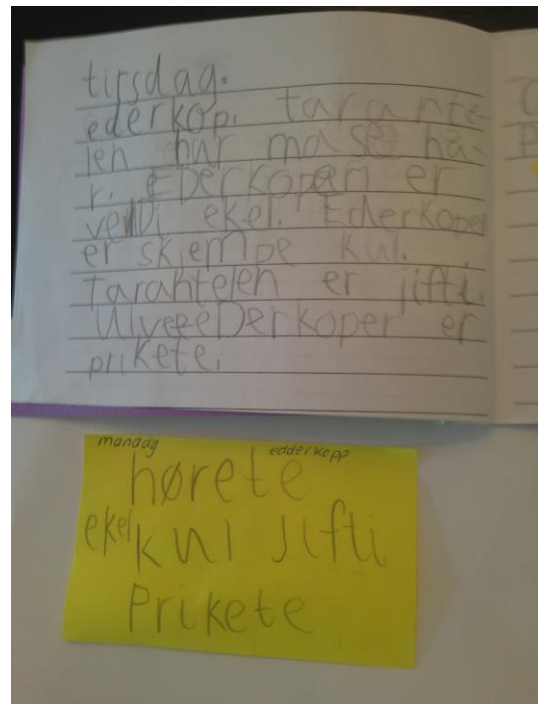 tirsdag.
ederkop. tarante-
len har mase hå-
r. EDerkopen er
velDi ekel. Ederkopen
er skjempe kul.
Tarantelen er jifti.
UlveeDerkoper er
prikete.
mandag edderkopp
hørete
ekel kul Jifti
Prikete